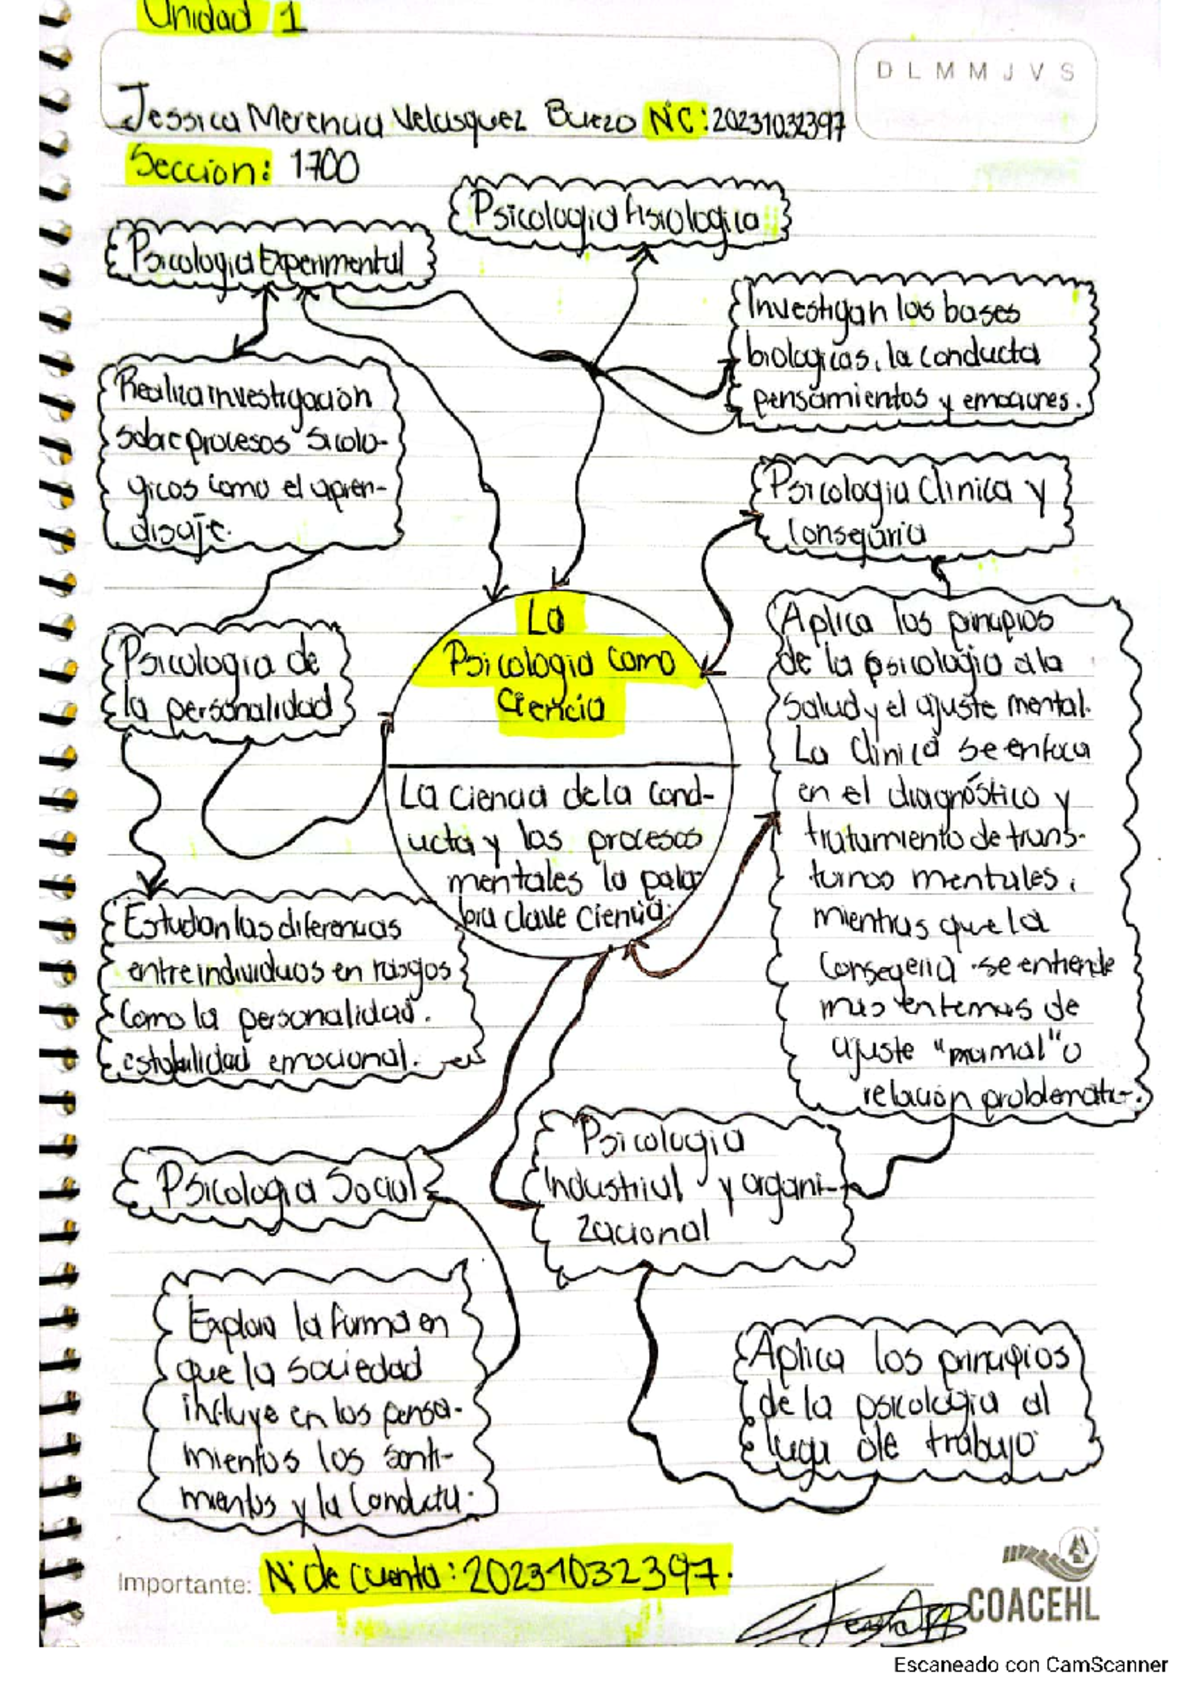 Unidad 1
D L M M J V S
Jessica Merchua Velasquez Buezo N°C: 20231032397
Sección: 1700
Psicologia fisiologica
Psicologia Experimental
Investigan las bases
biologicas, la conducta
pensamientos y emociones.
Realiza investigación
sobre procesos Sicolo-
gicos como el apren-
disaje.
Psicologia Clinica y
Consejuria
La
Psicologia como
Ciencia
La ciencia de la cond-
ucta y los procesos
mentales la pala-
bra clave Ciencia.
Psicologia de
la personalidad
Aplica los principios
de la psicologia a la
Salud y el ajuste mental.
La Clinica se enfoca
en el diagnóstico y
tratamiento de trans-
turnos mentales,
mientras que la
Consegeria se entiende
mas en temas de
ajuste "normal" o
relación problemati-.
Estudian las diferencias
entre individuos en rasgos
Como la personalidad.
estabilidad emocional.
Psicologia Social
Psicologia
Industrial y organi-
zacional
Explora la forma en
que la sociedad
influye en los pensa-
mientos los senti-
mientos y la Conducta.
Aplica los principios
de la psicologia al
lugar de trabajo
Importante: N° de cuenta: 20231032397.
COACEHL
Escaneado con CamScanner